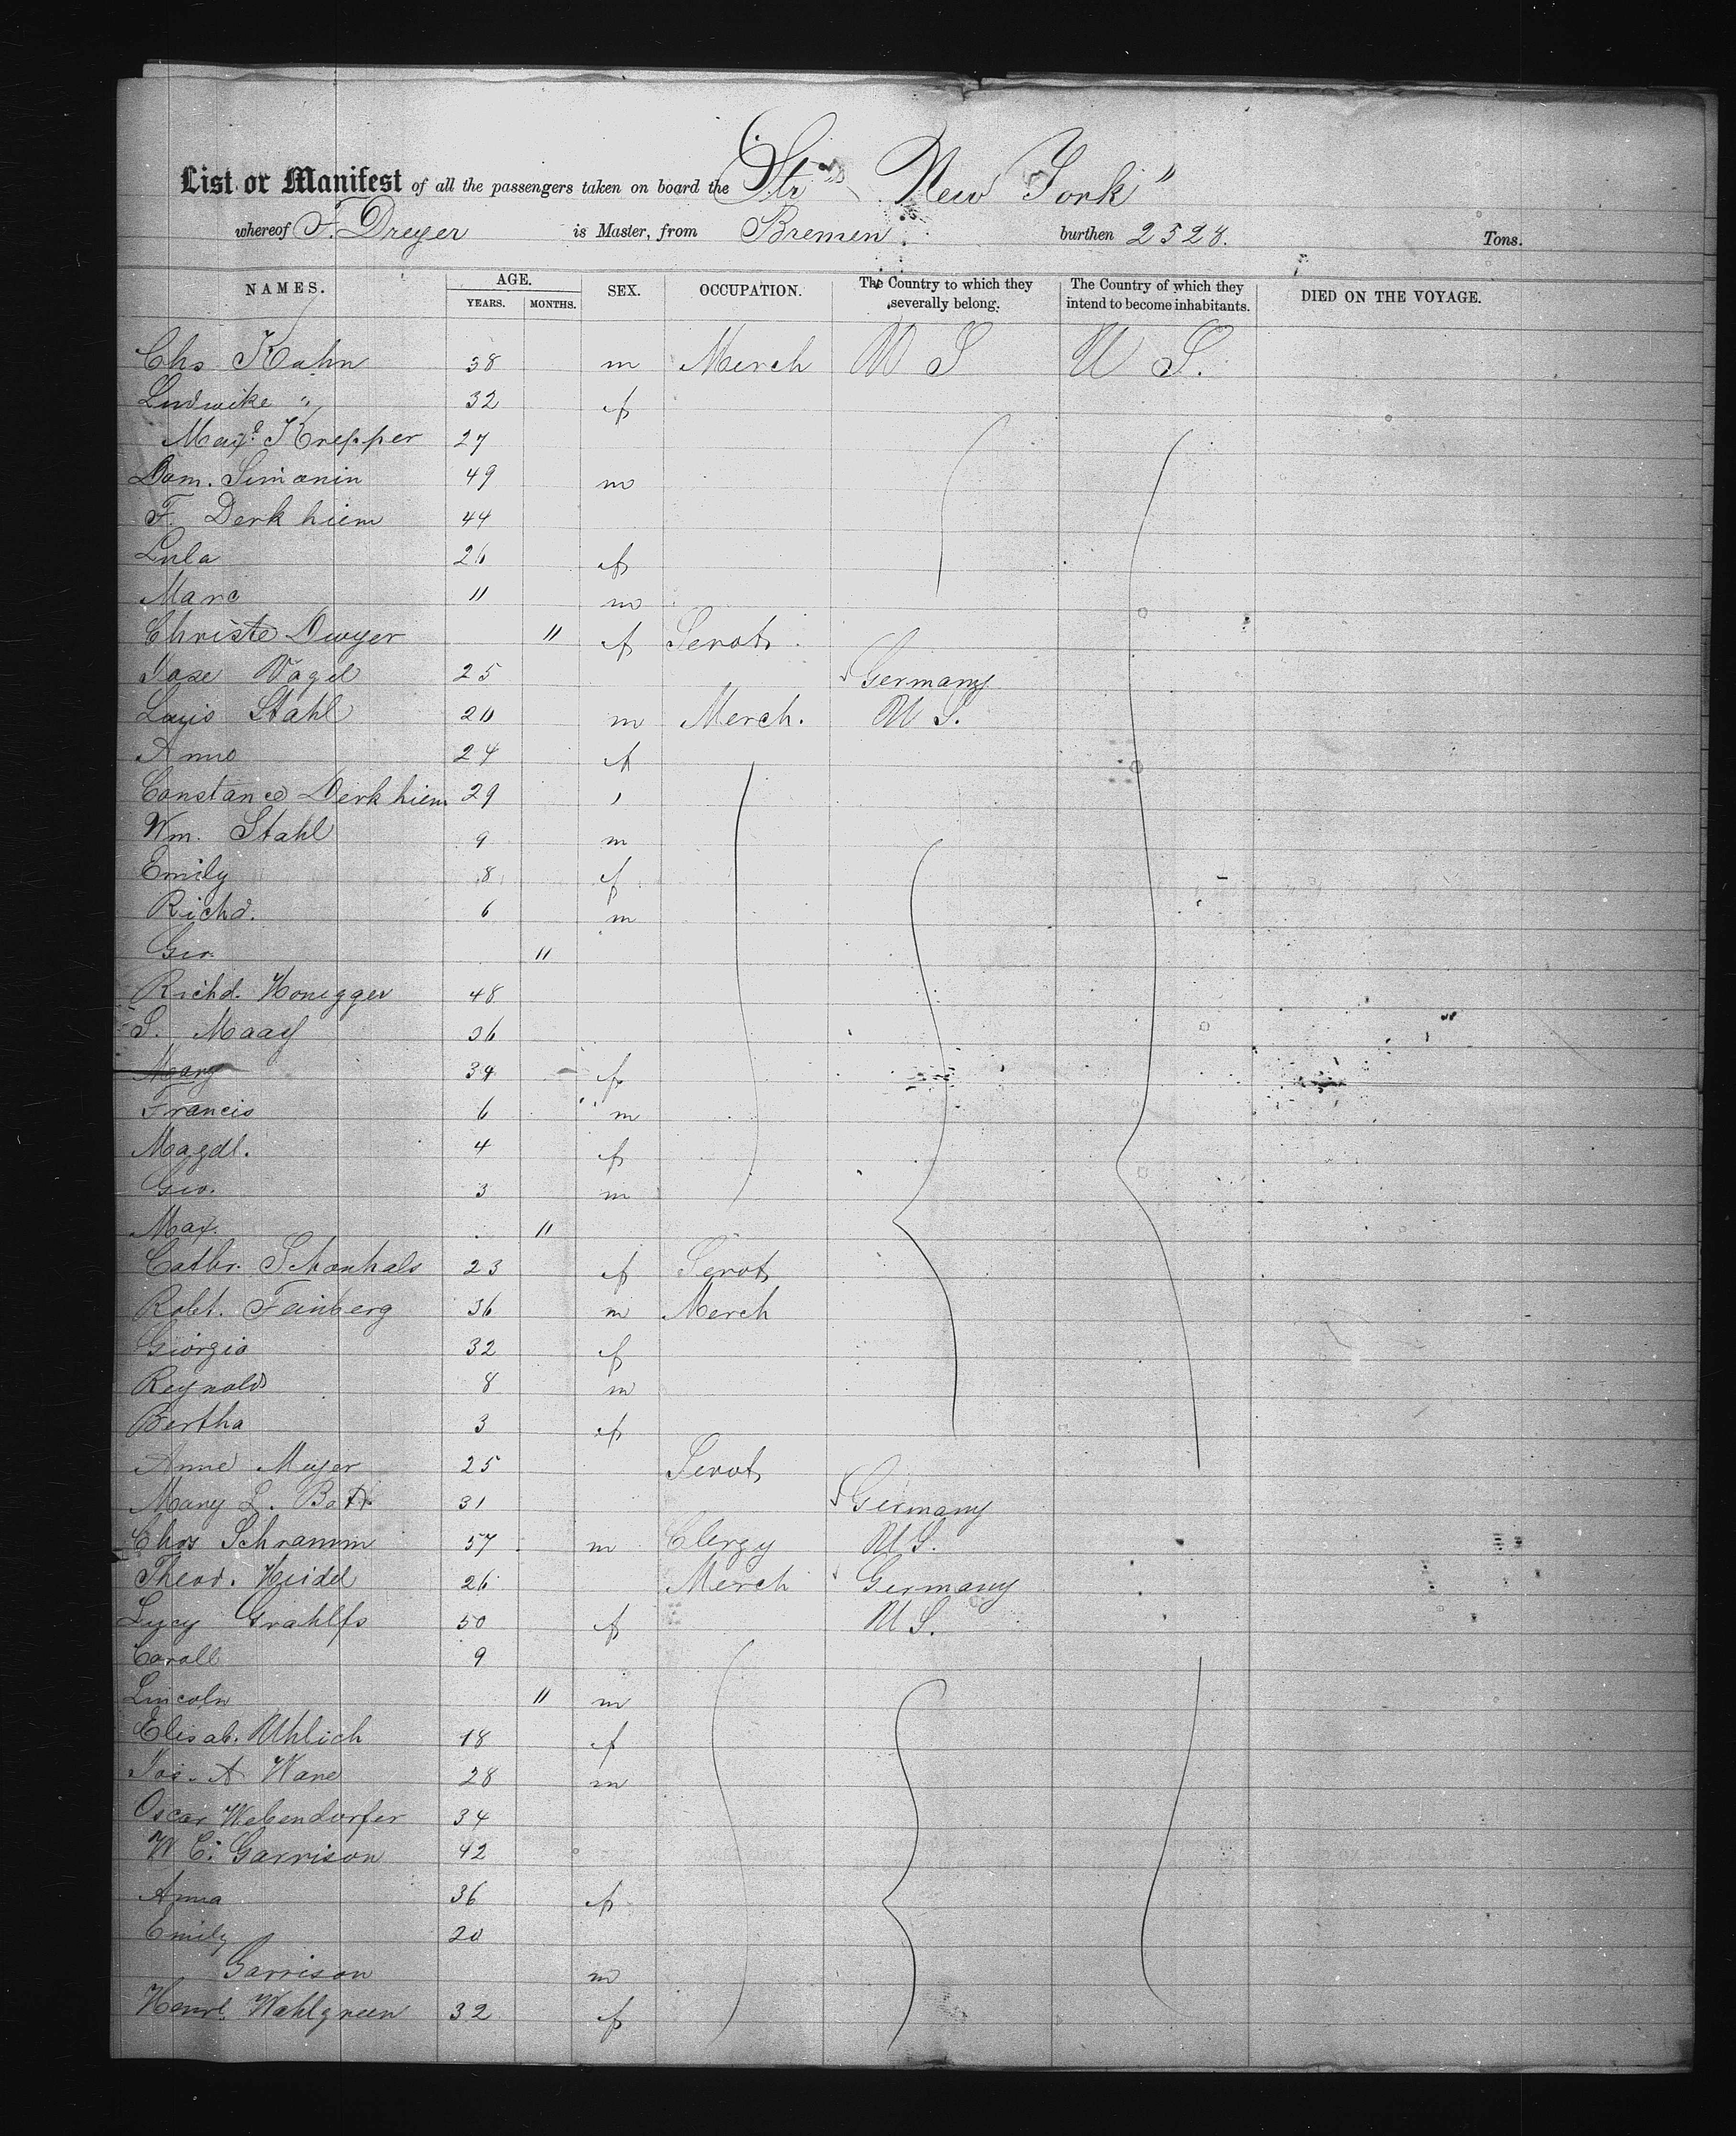 List or Manifest of all the passengers taken on board the Str "New York"
whereof F. Dreyer is Master, from Bremen. burthen 2528. Tons.
NAMES. AGE. YEARS. MONTHS. SEX. OCCUPATION. The Country to which they severally belong. The Country of which they intend to become inhabitants. DIED ON THE VOYAGE.
Chs Kahn 38 m Merch U S U S.
Ludwike " 32 f
Krepper 27
Dom. Simonin 49 m
F. Derkhiem 44
Lula 26 f
Marc 11 m
Christe Dwyer " f Servt.
Vogel 25 Germany
Louis Stahl 20 m Merch. U S.
24 f
Constance Derkhiem 29
Wm. Stahl 9 m
Emily 8 f
Richd. 6 m
Geo. "
Richd. Honegger 48
S. 36
Mary 34 f
Francis 6 m
Magdl. 4 f
Geo. 3 m
Max. "
Cathr. Schonhals 23 f Servt
Robt. Feinberg 36 m Merch
32 f
Reynold 8 m
Bertha 3 f
Anne Meyer 25 Servt
Mary L. 31 Germany
Chas Schramm 57 m Clergy U S.
Theod. Heidel 26 Merch Germany
Lucy Grahlfs 50 f U S.
9
Lincoln " m
Elisab. Uhlich 18 f
Jos. A 28 m
Oscar Webendorfer 34
W C. Garrison 42
Anna 36 f
Emily 20
Garrison m
Wahlgreen 32 f